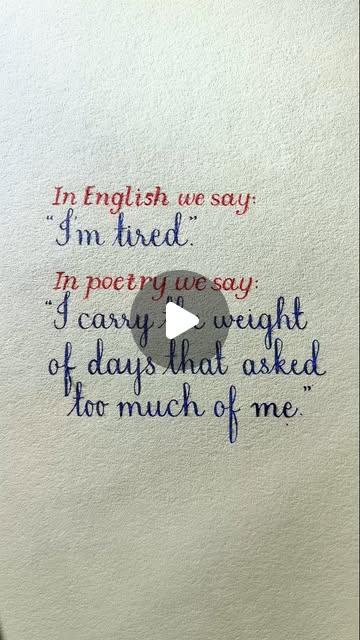 In English we say:
"I'm tired."
In poetry we say:
"I carry the weight
of days that asked
too much of me."